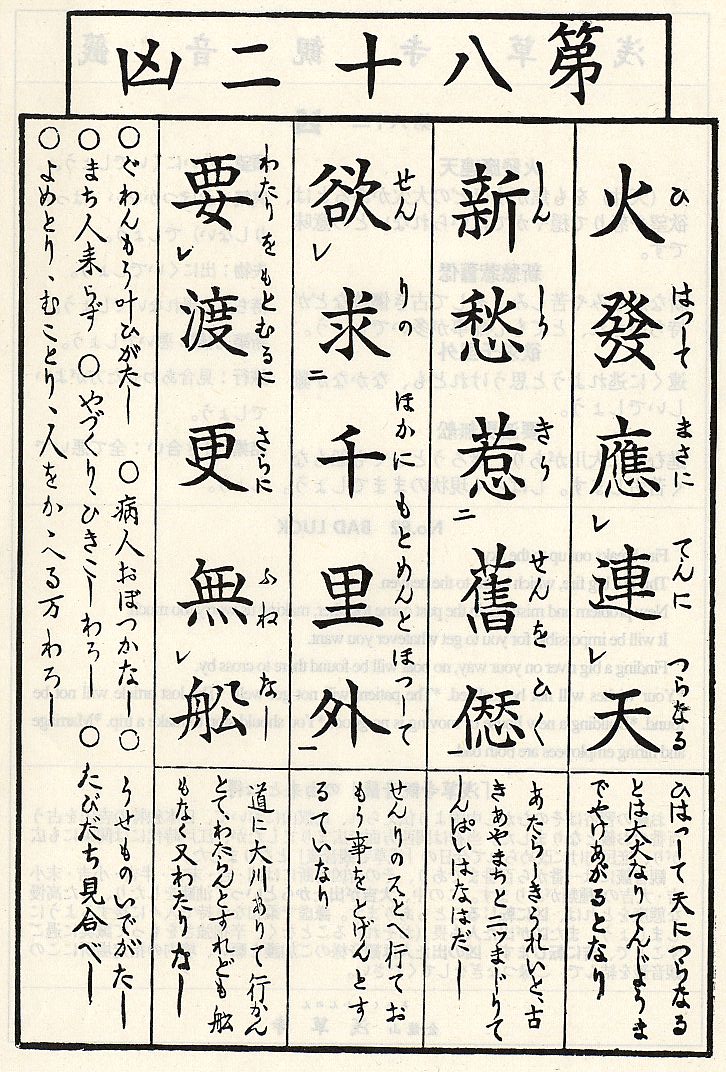 第八十二凶
ひ はつして まさに てんに つらなる
火發應レ連レ天
ひはつして天につらなる
とは大火なりてんじようま
でやけあがるとなり
しん しう きう せんをひく
新愁惹二舊愆一
あたらしきうれいと、古
きあやまちと二ツまじりて
しんぱいはなはだし
せん りの ほかにもとめんとほつして
欲レ求二千里外一
せんりのそとへ行てお
もう事をとげんとす
るていなり
わたりをもとむるに さらに ふね なし
要レ渡更無レ舩
道に大川ありて行かん
とて、わたらんとすれども舩
もなし又わたりなし
○ぐわんもう叶ひがたし ○病人おぼつかなし ○うせものいでがたし
○まち人来らず ○やづくり、ひきこしわろし ○たびだち見合べし
○よめとり、むことり、人をかゝへる万わろし